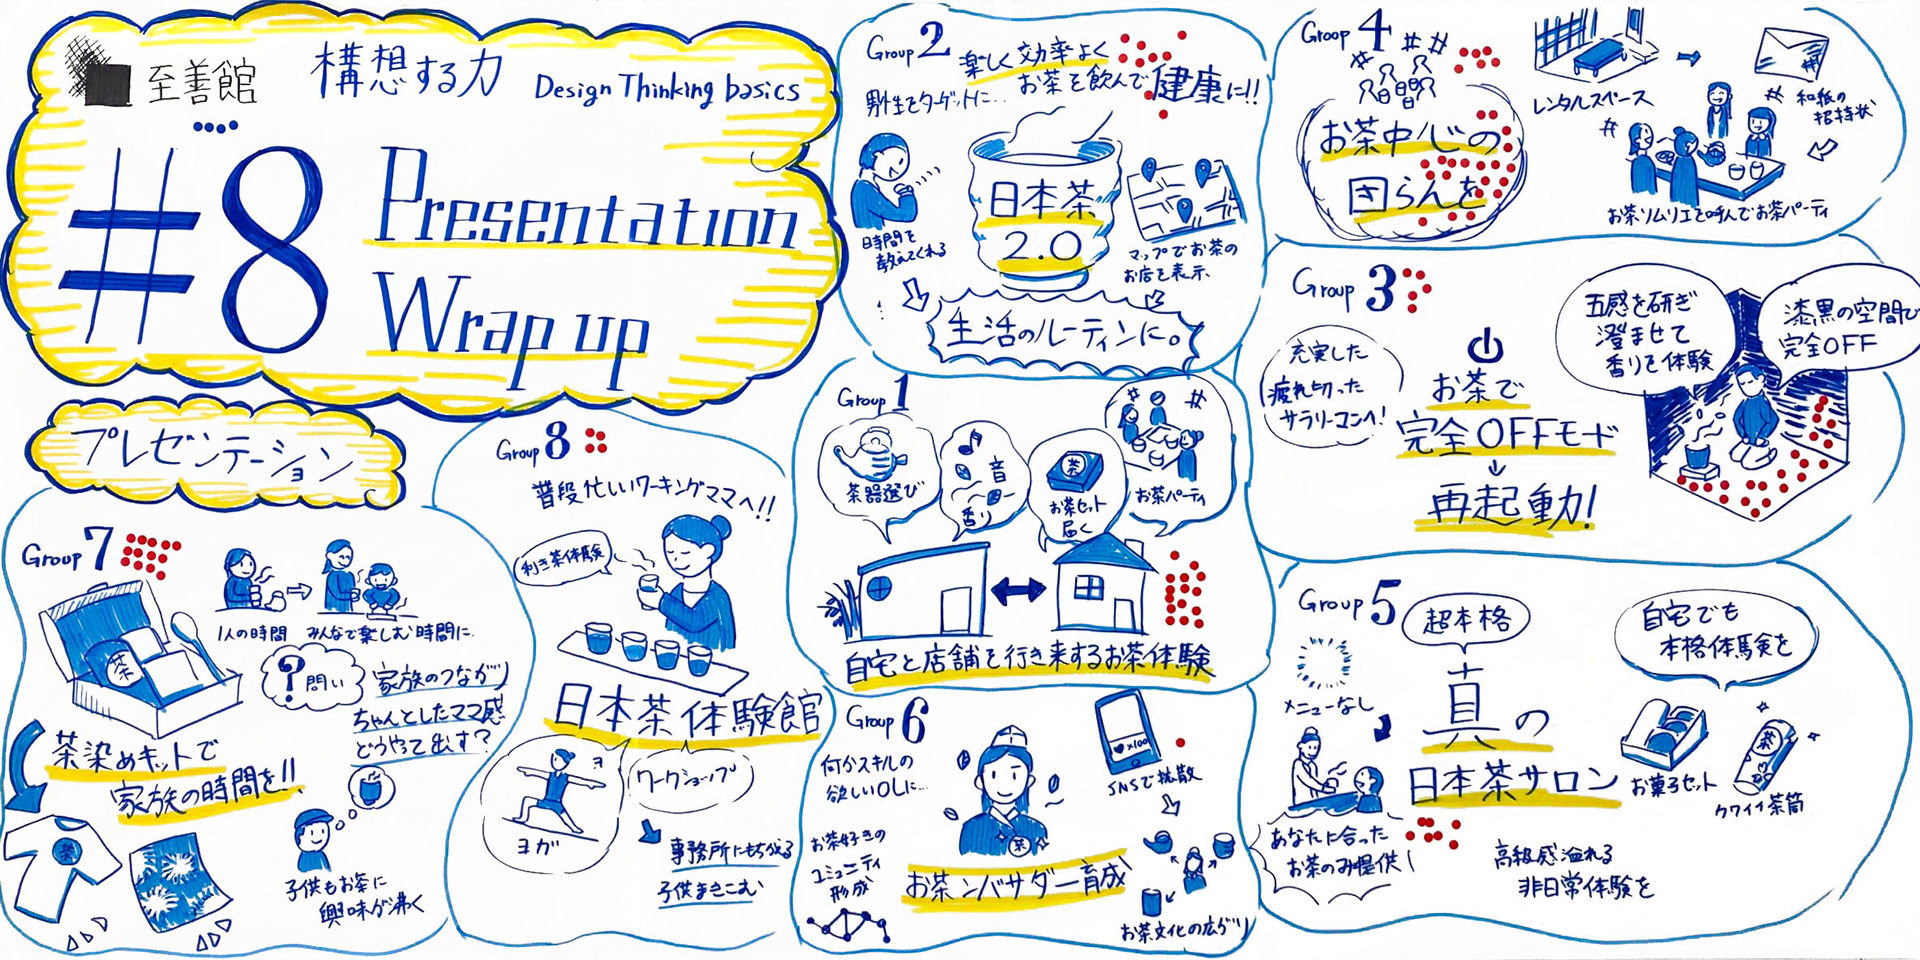 至善館
構想する力
Design Thinking basics
#8
Presentation
Wrap up
プレゼンテーション
Group 7
1人の時間
みんなで楽しむ時間に
?
問い
家族のつながり
ちゃんとしたママ感
どうやって出す?
茶
茶染めキットで
家族の時間を!!
茶
子供もお茶に
興味が沸く
Group 8
普段忙しいワーキングママへ!!
利き茶体験
日本茶体験館
ヨガ
ワークショップ
事務所にもちかえる
子供まきこむ
Group 2
楽しく効率よく
お茶を飲んで健康に!!
男性をターゲットに...
時間を
教えてくれる
日本茶
2.0
マップでお茶の
お店を表示
生活のルーティンに。
Group 1
茶器選び
音
香り
茶
お茶セット
届く
#
お茶パーティ
自宅と店舗を行き来するお茶体験
Group 6
何かスキルの
欲しいOLに...
お茶好きの
コミュニティ
形成
茶
お茶ンバサダー育成
×100
SNSで拡散
お茶文化の広がり
Group 4
# # #
お茶中心の
団らんを
レンタルスペース
和紙の
招待状
お茶ソムリエを呼んでお茶パーティ
Group 3
充実した
疲れ切った
サラリーマンへ!
お茶で
完全OFFモード
再起動!
五感を研ぎ
澄ませて
香りを体験
漆黒の空間で
完全OFF
Group 5
超本格
メニューなし
真の
日本茶サロン
あなたに合った
お茶のみ提供!
自宅でも
本格体験を
お菓子セット
茶
カワイイ茶筒
高級感溢れる
非日常体験を